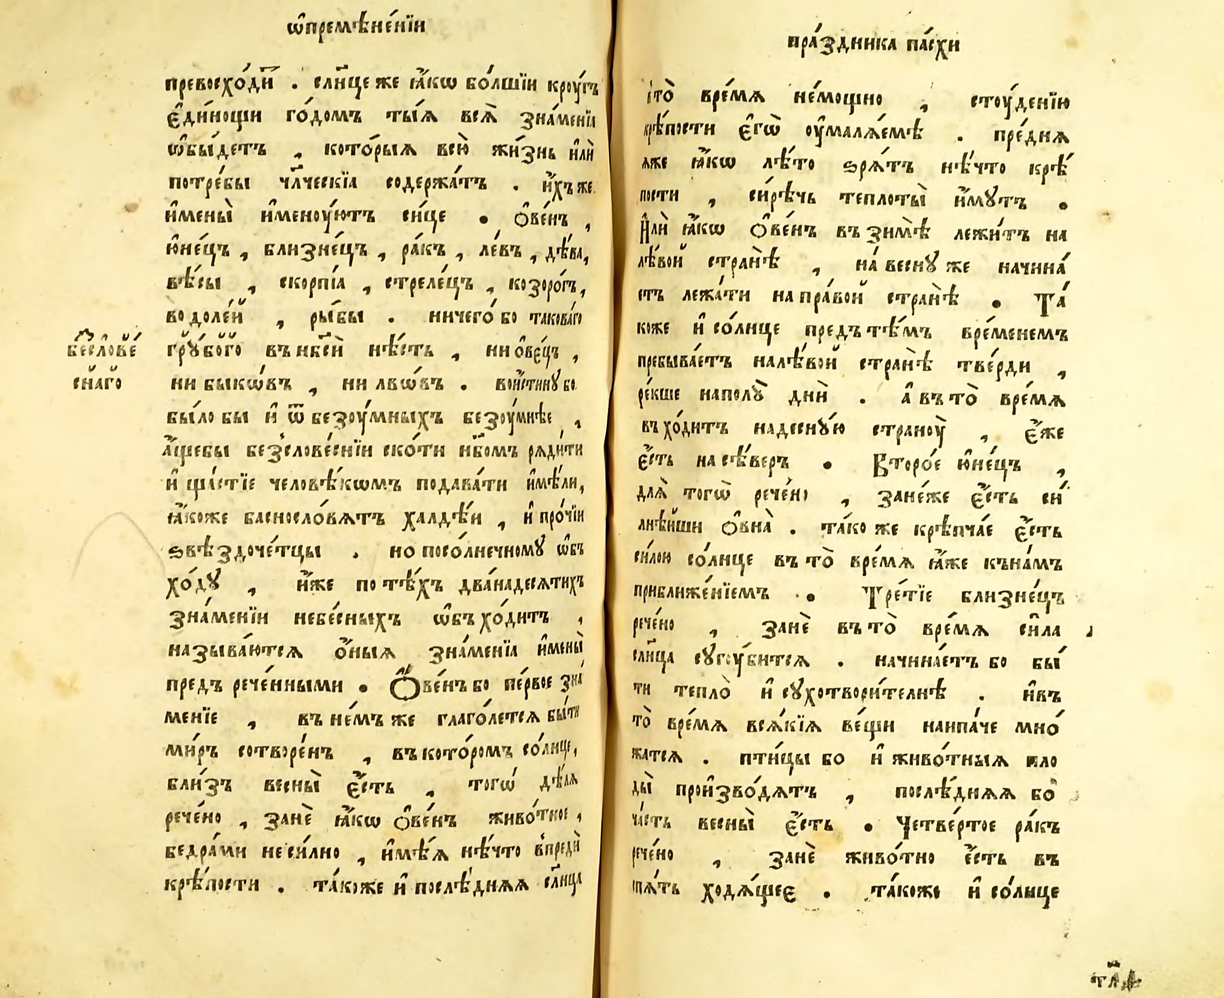 ѡ҆премѣне́нїи
превосхо́ди . сл҃нце же ꙗ҆́кѡ бо́лшїи кроу́гъ
є҆ди́нощи го́домъ ты́ѧ всѧ̀ зна́менїѧ
ѡ҆бы́детъ , кото́рыѧ всю̀ жи́знь и҆лѝ
потре́бы чл҃ческїѧ содержа́тъ . и҆́хъ же
и҆́мены̀ и҆меноу́ютъ си́це . ѻ҆ве́нъ ,
ю҆не́цъ , близне́цъ , ра́къ , ле́въ , дѣ́ва,
вѣ́сы , скорпі́а , стреле́цъ , козоро́гъ,
водоле́й , ры́бы . ничего́ бо такова́го
гру́бого въ нб҃сѝ нѣ́сть , ни ѻ҆ве́цъ ,
бесло́ве́
сна́го
ни быкѡ́въ , ни львѡ́въ . вои́стинну бо
бы́ло бы и҆ ѿ безоу́мныхъ безоу́мнѣе ,
а҆́щебы безслове́снїи ско́ти нб҃омъ рѧди́ти
и҆ ща́стїе человѣ́кѡмъ подава́ти и҆мѣ́ли,
ꙗ҆́коже баснослѡ́вѧтъ халде́и , и҆ про́чїи
ѕвѣздоче́тцы . но посо́лнечному ѡ҆бъ
хо́ду , и҆́же по тѣ́хъ два́надесѧтихъ
зна́менїи небе́сныхъ ѡ҆бъхо́дитъ ,
называ́ютсѧ ѻ҆́ныѧ зна́менїѧ и҆́мены̀
предъ рече́нными . Ѻ҆ве́нъ бо пе́рвое зна́
менїе , въ не́мъ же глаго́летсѧ бы́ти
ми́ръ сотворе́нъ , въ кото́ромъ со́лнце,
бли́зъ весны̀ є҆́сть , тогѡ̀ дѣ́лѧ
рече́но , занѐ ꙗ҆́кѡ ѻ҆ве́нъ живо́тное,
бедра́ми неси́лно , и҆мѣ́ѧ нѣ́что впредѝ
крѣ́пости . та́коже и҆ послѣ́днѧѧ сл҃нца
пра́здника па́схи
то̀ вре́мѧ не́мощно , стоуде́нїю
крѣ́пости є҆гѡ̀ оу҆малѧ́емѣ . пре́днѧѧ
ѧже ꙗ҆́кѡ лѣ́то ѕрѧ́тъ нѣ́что крѣ́
пости , си́рѣчь теплоты̀ и҆́мутъ .
И҆лѝ ꙗ҆́кѡ ѻ҆ве́нъ въ зимѣ̀ лежи́тъ на
лѣ́вой странѣ̀ , на весну́ же начина́
етъ лежа́ти на пра́вой странѣ̀ . Та́
коже и҆ со́лнце предъ тѣ́мъ вре́менемъ
пребыва́етъ на лѣ́вой странѣ̀ тве́рди ,
ре́кше на полу̀ днѝ . а҆ въ то̀ вре́мѧ
въхо́дитъ на десну́ю страноу̀ , є҆́же
є҆́сть на сѣ́веръ . Второ́е ю҆не́цъ ,
длѧ̀ тогѡ̀ рече́но , зане́же є҆́сть си́
лнѣйши ѻ҆вна̀ . та́коже крѣпча́е є҆́сть
си́лою со́лнце въ то̀ вре́мѧ ꙗ҆́же къ на́мъ
приближе́нїемъ . Тре́тїе близне́цъ
рече́но , занѐ въ то̀ вре́мѧ си́ла
сл҃нца сугоу́битсѧ . начина́етъ бо бы́
ти тепло̀ и҆ сухотвори́телнѣ . и҆ въ
то̀ вре́мѧ всѧ́кїѧ ве́щи наипа́че мно́
жатсѧ . пти́цы бо и҆ живо́тныѧ пло
ды̀ произво́дѧтъ , послѣ́днѧѧ бо
ча́сть весны̀ є҆́сть . Четве́ртое ра́къ
рече́но , занѐ живо́тно є҆́сть въ
спѧ́ть ходѧ́щее . та́коже и҆ со́лнце